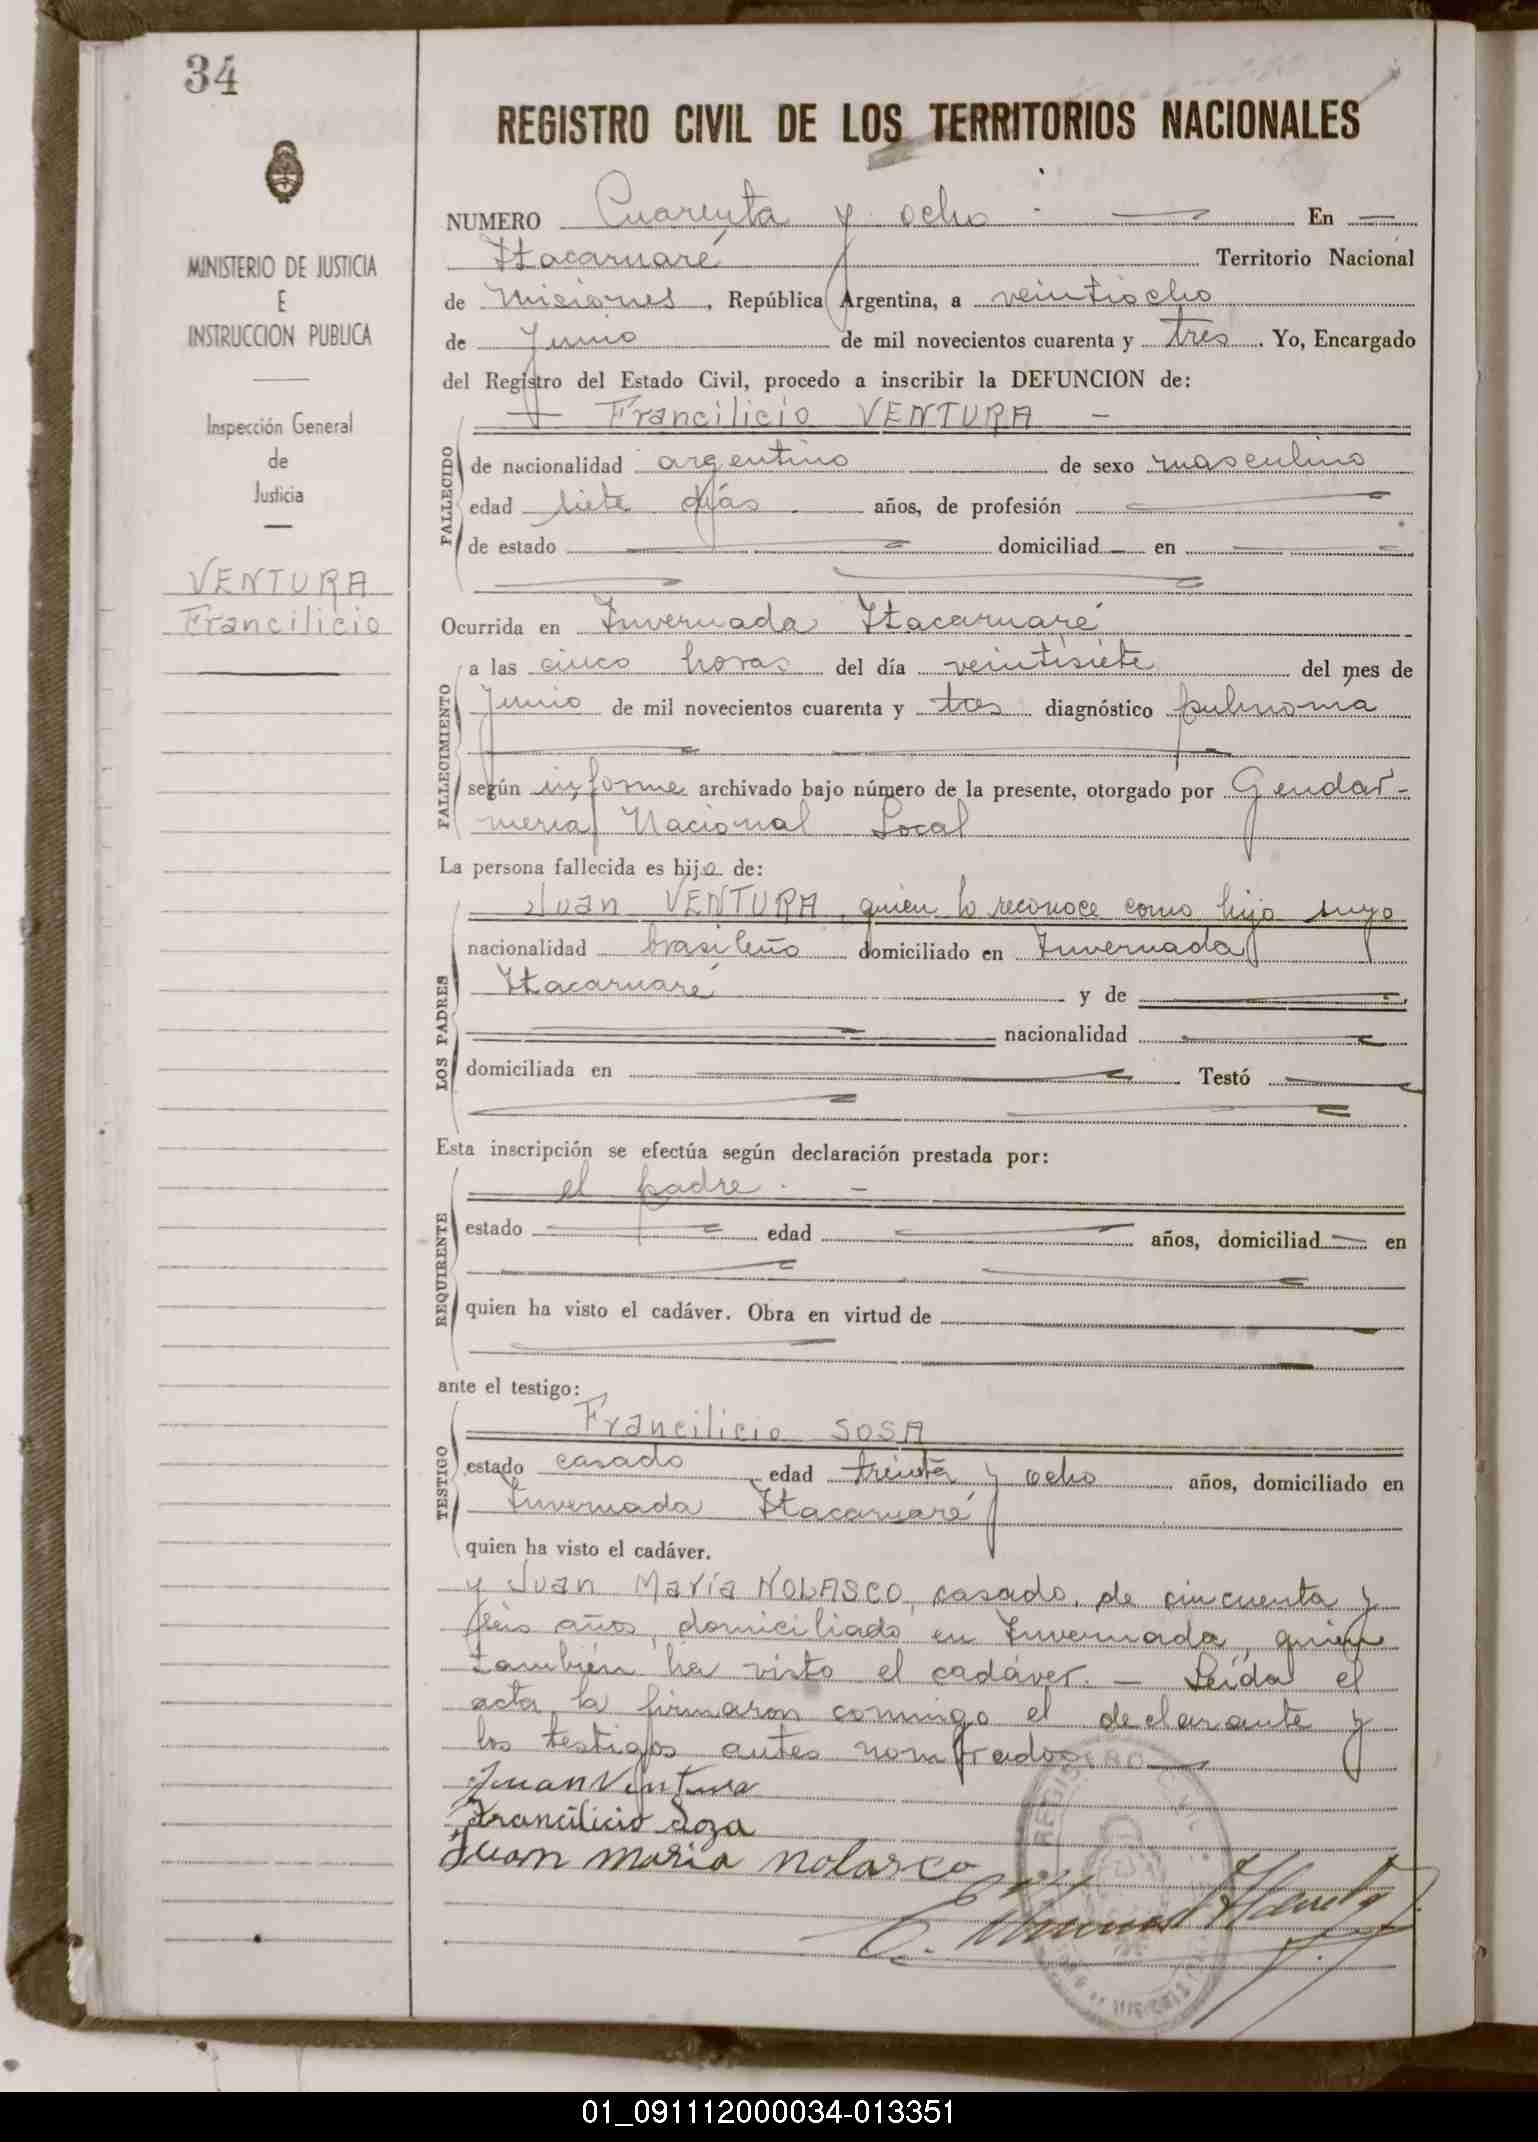 34
MINISTERIO DE JUSTICIA
E
INSTRUCCION PUBLICA
Inspección General
de
Justicia
VENTURA
Francilicio
REGISTRO CIVIL DE LOS TERRITORIOS NACIONALES
NUMERO Cuarenta y ocho. — En —
Itacaruaré Territorio Nacional
de Misiones, República Argentina, a veintiocho
de Junio de mil novecientos cuarenta y tres. Yo, Encargado
del Registro del Estado Civil, procedo a inscribir la DEFUNCION de:
Francilicio VENTURA –
FALLECIDO
de nacionalidad argentino de sexo masculino
edad siete días años, de profesión
de estado domiciliad en
Ocurrida en Invernada Itacaruaré
FALLECIMIENTO
a las cinco horas del día veintisiete del mes de
Junio de mil novecientos cuarenta y tres diagnóstico pulmonía
según informe archivado bajo número de la presente, otorgado por Gendar-
mería Nacional Local
La persona fallecida es hijo de:
LOS PADRES
Juan VENTURA, quien lo reconoce como hijo suyo
nacionalidad brasileño domiciliado en Invernada
Itacaruaré y de
nacionalidad
domiciliada en Testó
Esta inscripción se efectúa según declaración prestada por:
REQUIRENTE
el padre. –
estado edad años, domiciliad en
quien ha visto el cadáver. Obra en virtud de
ante el testigo:
TESTIGO
Francilicio SOSA
estado casado edad treinta y ocho años, domiciliado en
Invernada Itacaruaré
quien ha visto el cadáver.
y Juan María NOLASCO, casado, de cincuenta y
seis años, domiciliado en Invernada, quien
también ha visto el cadáver. — Leída el
acta, la firmaron conmigo el declarante y
los testigos antes nombrados.
Juan Ventura
Francilicio Soza
Juan maria nolasco
REGISTRO CIVIL
01_091112000034-013351